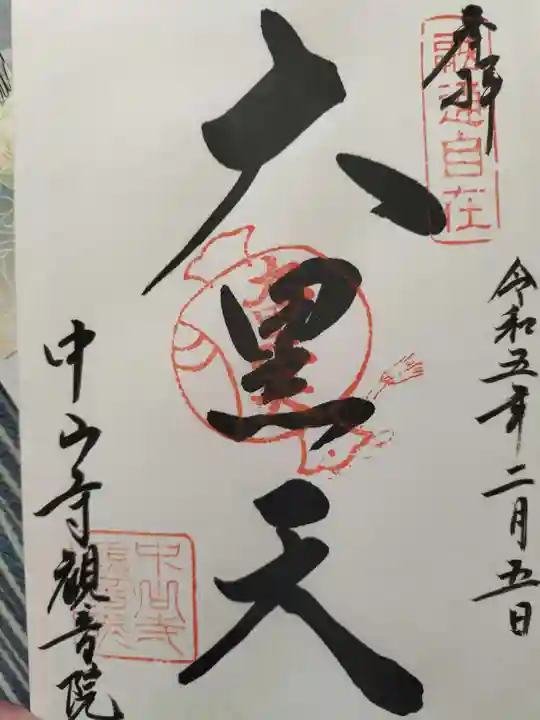 奉拝
融通自在
令和五年二月五日
大黒天
中山寺観音院